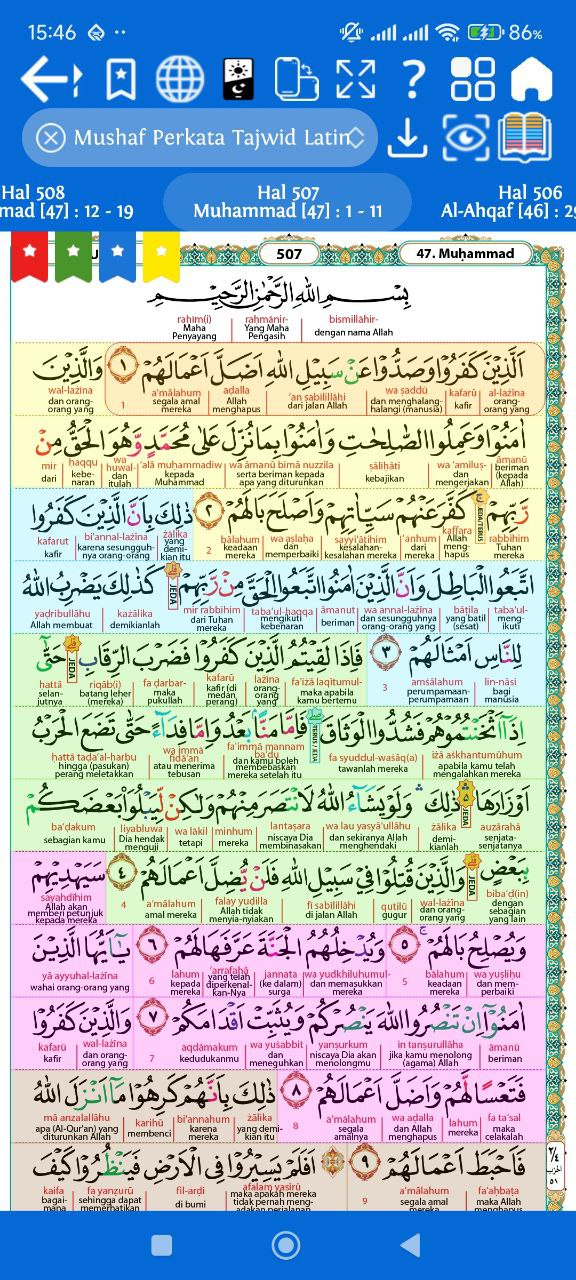 15:46 86%
Mushaf Perkata Tajwid Latin
Hal 508 Hal 507 Hal 506
mad [47] : 12 - 19 Muhammad [47] : 1 - 11 Al-Ahqaf [46] : 29
507 47. Muḥammad
بِسْمِ اللّٰهِ الرَّحْمٰنِ الرَّحِيْمِ
bismillāhir- raḥmānir- raḥīm(i)
dengan nama Allah Yang Maha Pengasih Maha Penyayang
اَلَّذِيْنَ كَفَرُوْا وَصَدُّوْا عَنْ سَبِيْلِ اللّٰهِ اَضَلَّ اَعْمَالَهُمْ ١ وَالَّذِيْنَ
al-lażīna kafarū wa ṣaddū ‘an sabīlillāhi aḍalla a‘mālahum 1 wal-lażīna
orang-orang yang kafir dan menghalang-halangi (manusia) dari jalan Allah Allah menghapus segala amal mereka dan orang-orang yang
اٰمَنُوْا وَعَمِلُوا الصّٰلِحٰتِ وَاٰمَنُوْا بِمَا نُزِّلَ عَلٰى مُحَمَّدٍ وَّهُوَ الْحَقُّ مِنْ
āmanū wa ‘amiluṣ- ṣāliḥāti wa āmanū bimā nuzzila ‘alā muḥammadiw wa huwal- ḥaqqu mir
beriman (kepada Allah) dan mengerjakan kebajikan serta beriman kepada apa yang diturunkan kepada Muhammad dan itulah kebenaran dari
رَّبِّهِمْ كَفَّرَ عَنْهُمْ سَيِّاٰتِهِمْ وَاَصْلَحَ بَالَهُمْ ٢ ذٰلِكَ بِاَنَّ الَّذِيْنَ كَفَرُوا
rabbihim kaffara ‘anhum sayyi'ātihim wa aṣlaḥa bālahum 2 żālika bi'annal-lażīna kafarut
Tuhan mereka Allah menghapus dari mereka kesalahan-kesalahan mereka dan memperbaiki keadaan mereka yang demikian itu karena sesungguhnya orang-orang kafir
اتَّبَعُوا الْبَاطِلَ وَاَنَّ الَّذِيْنَ اٰمَنُوا اتَّبَعُوا الْحَقَّ مِنْ رَّبِّهِمْ كَذٰلِكَ يَضْرِبُ اللّٰهُ
taba‘ul- bāṭila wa annal-lażīna āmanut taba‘ul-ḥaqqa mir rabbihim każālika yaḍribullāhu
mengikuti yang batil (sesat) dan sesungguhnya orang-orang yang beriman mengikuti kebenaran dari Tuhan mereka demikianlah Allah membuat
لِلنَّاسِ اَمْثَالَهُمْ ٣ فَاِذَا لَقِيْتُمُ الَّذِيْنَ كَفَرُوْا فَضَرْبَ الرِّقَابِ حَتّٰٓى
lin-nāsi amṡālahum 3 fa'iżā laqītumul- lażīna kafarū fa ḍarbar- riqāb(i) ḥattā
bagi manusia perumpamaan-perumpamaan mereka maka apabila kamu bertemu orang-orang yang kafir (di medan perang) maka pukullah batang leher (mereka) selanjutnya
اِذَآ اَثْخَنْتُمُوْهُمْ فَشُدُّوا الْوَثَاقَ فَاِمَّا مَنًّاۢ بَعْدُ وَاِمَّا فِدَاۤءً حَتّٰى تَضَعَ الْحَرْبُ
iżā aṡkhantumūhum fa syuddul-waṡāq(a) fa'immā mannam ba‘du wa immā fidā'an ḥattā taḍa‘al-ḥarbu
apabila kamu telah mengalahkan mereka tawanlah mereka dan kamu boleh membebaskan mereka setelah itu atau menerima tebusan hingga (pasukan) perang meletakkan
اَوْزَارَهَا ذٰلِكَ وَلَوْ يَشَاۤءُ اللّٰهُ لَانْتَصَرَ مِنْهُمْ وَلٰكِنْ لِّيَبْلُوَا۟ بَعْضَكُمْ
auzārahā żālika wa lau yasyā'ullāhu lantaṣara minhum wa lākil liyabluwa ba‘ḍakum
senjata-senjatanya demikianlah dan sekiranya Allah menghendaki niscaya Dia membinasakan mereka tetapi Dia hendak menguji sebagian kamu
بِبَعْضٍ وَالَّذِيْنَ قُتِلُوْا فِيْ سَبِيْلِ اللّٰهِ فَلَنْ يُّضِلَّ اَعْمَالَهُمْ ٤ سَيَهْدِيْهِمْ
biba‘ḍ(in) wal-lażīna qutilū fī sabīlillāhi falay yuḍilla a‘mālahum 4 sayahdīhim
dengan sebagian yang lain dan orang-orang yang gugur di jalan Allah Allah tidak menyia-nyiakan amal mereka Allah akan memberi petunjuk kepada mereka
وَيُصْلِحُ بَالَهُمْ ٥ وَيُدْخِلُهُمُ الْجَنَّةَ عَرَّفَهَا لَهُمْ ٦ يٰٓاَيُّهَا الَّذِيْنَ
wa yuṣliḥu bālahum 5 wa yudkhiluhumul- jannata ‘arrafahā lahum 6 yā ayyuhal-lażīna
dan memperbaiki keadaan mereka dan memasukkan mereka (ke dalam) surga yang telah diperkenalkan-Nya kepada mereka wahai orang-orang yang
اٰمَنُوْٓا اِنْ تَنْصُرُوا اللّٰهَ يَنْصُرْكُمْ وَيُثَبِّتْ اَقْدَامَكُمْ ٧ وَالَّذِيْنَ كَفَرُوْا
āmanū in tanṣurullāha yanṣurkum wa yuṡabbit aqdāmakum 7 wal-lażīna kafarū
beriman jika kamu menolong (agama) Allah niscaya Dia akan menolongmu dan meneguhkan kedudukanmu dan orang-orang yang kafir
فَتَعْسًا لَّهُمْ وَاَضَلَّ اَعْمَالَهُمْ ٨ ذٰلِكَ بِاَنَّهُمْ كَرِهُوْا مَآ اَنْزَلَ اللّٰهُ
fa ta‘sal lahum wa aḍalla a‘mālahum 8 żālika bi'annahum karihū mā anzalallāhu
maka celakalah mereka dan Allah menghapus segala amalnya yang demikian itu karena mereka membenci apa (Al-Qur'an) yang diturunkan Allah
فَاَحْبَطَ اَعْمَالَهُمْ ٩ اَفَلَمْ يَسِيْرُوْا فِى الْاَرْضِ فَيَنْظُرُوْا كَيْفَ
fa'aḥbaṭa a‘mālahum 9 afalam yasīrū fil-arḍi fa yanẓurū kaifa
maka Allah menghapus segala amal mereka maka apakah mereka tidak pernah mengadakan perjalanan di bumi sehingga dapat memerhatikan bagaimana